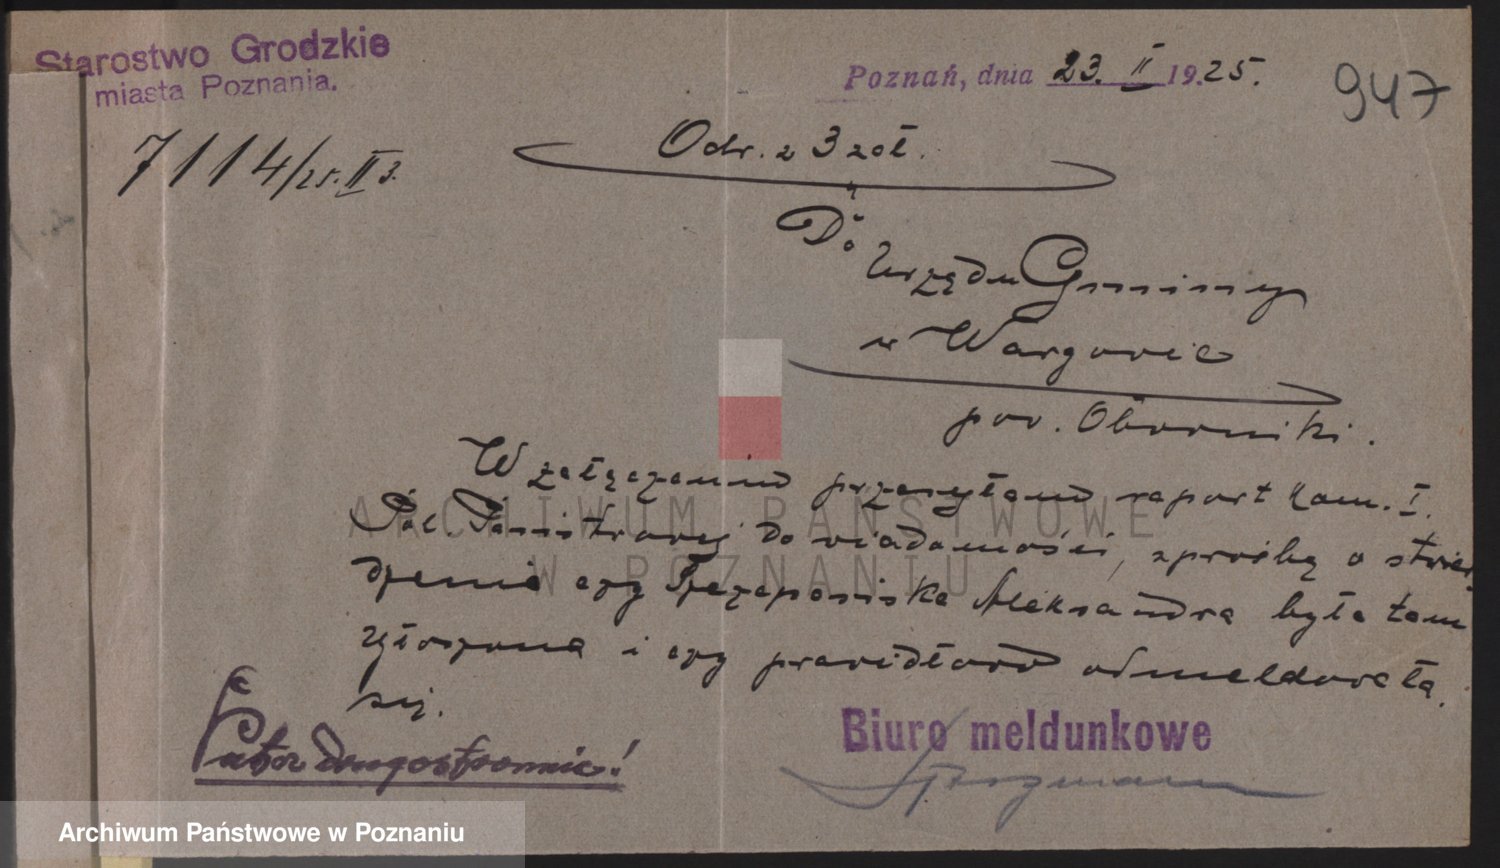 Starostwo Grodzkie
miasta Poznania.
Poznań, dnia 23. II 1925.
947
7114/25. II 3.
Odr. z 3 zał.
Do
Urzędu Gminy
w Wargowie
pow. Oborniki.
W załączeniu przesyłam raport Kom. I.
Pol. Państwowej do wiadomości, z prośbą o stwier-
dzenie czy Szczepańska Aleksandra była tam
zgłoszona i czy prawidłowo odmeldowała
się.
Biuro meldunkowe
Patrz drugostronnie!
ARCHIWUM PAŃSTWOWE
W POZNANIU
Archiwum Państwowe w Poznaniu